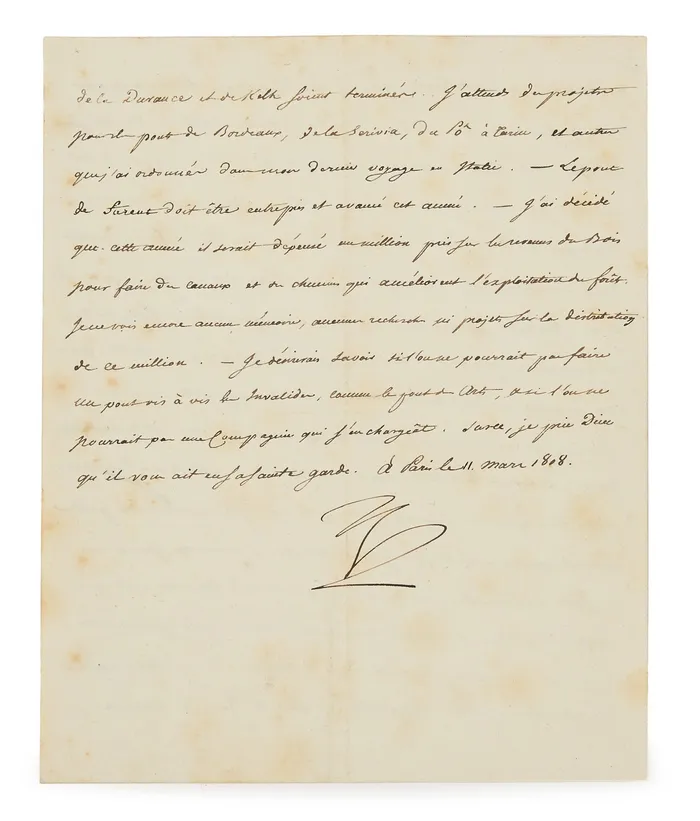 de la Durance et de Kelh soient terminés. J'attends des projets
pour les ponts de Bordeaux, de la Scrivia, du Pô à Turin, et autres
que j'ai ordonnés dans mon dernier voyage en Italie. — Le pont
de Sevres doit être entrepris et avancé cet année. — J'ai décidé
que cette année il serait dépensé un million pris sur les revenus des Bois
pour faire des canaux et des chemins qui améliorent l'exploitation des forêts.
Je ne vois encore aucun mémoire, aucunes recherches ni projets sur la distribution
de ce million. — Je désirerais savoir si l'on ne pourrait pas faire
un pont vis à vis les Invalides, comme le pont des Arts, si l'on ne
pourrait pas une Compagnie qui s'en chargeât. Sur ce, je prie Dieu
qu'il vous ait en sa sainte garde. À Paris le 11. Mars 1808.